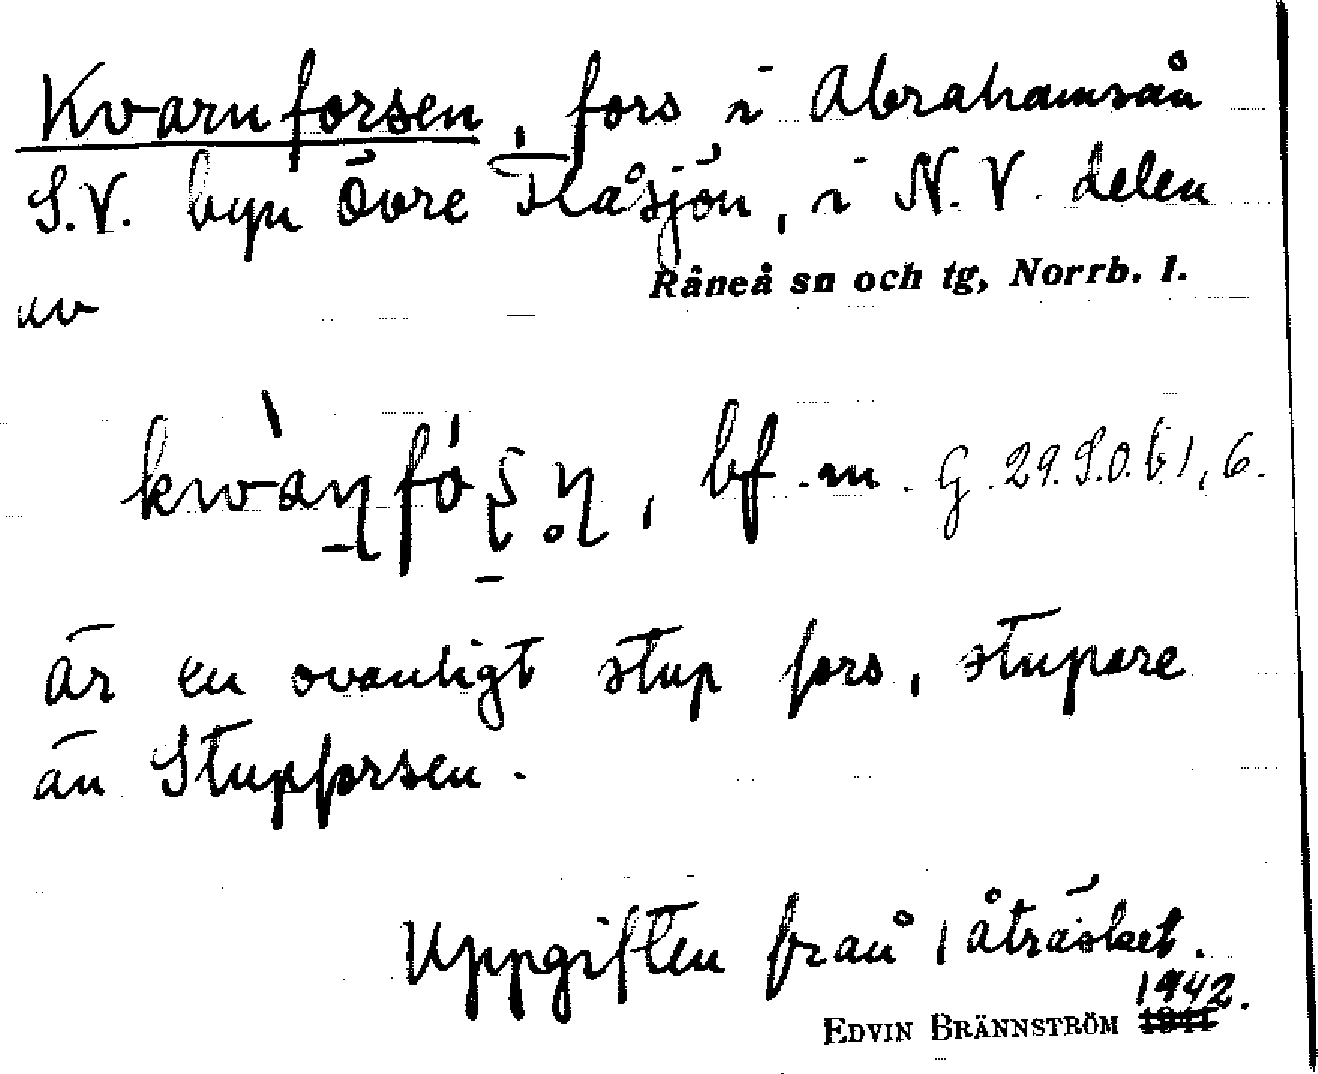 Kvarnforsen, fors i Abrahamsån
S.V. byn Övre Flåsjön, i N.V. delen
av Råneå sn och tg, Norrb. l.
bf. m. G. 29. S.O. b 1, 6.
är en ovanligt stup fors, stupare
än Stupforsen.
Uppgiften från
1942.
EDVIN BRÄNNSTRÖM 1941